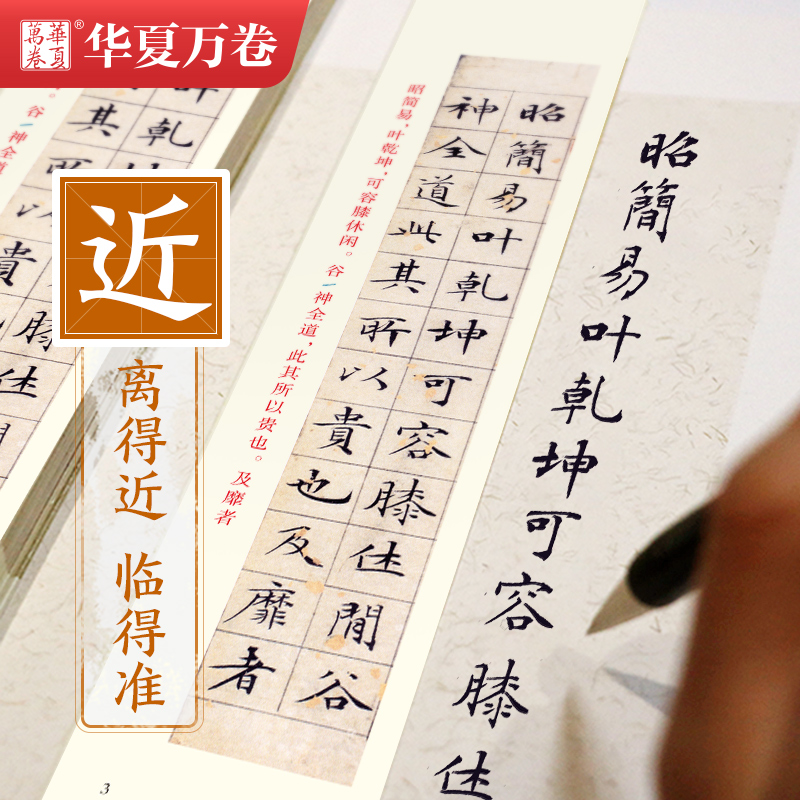 華夏萬卷
®
华夏万卷
近
离得近 临得准
昭簡易叶乾坤可容膝休
昭簡易叶乾坤可容膝休閒谷
神全道此其所以貴也及靡者
昭简易，叶乾坤，可容膝休闲。谷一神全道，此其所以贵也。及靡者
3
乾坤
膝休
其所以貴
谷一神全道